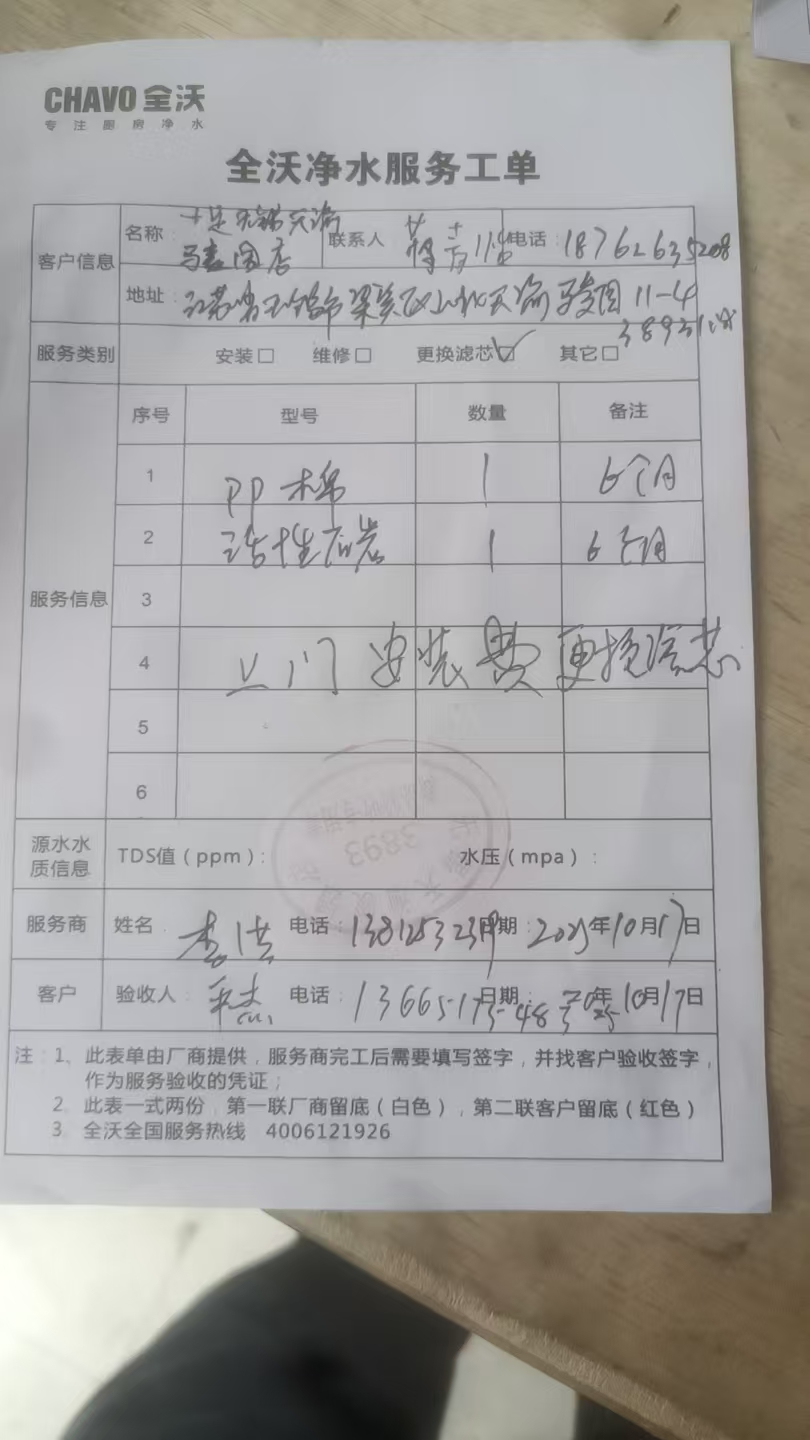 CHAVO 全沃
专注厨房净水
全沃净水服务工单
客户信息 名称: 十足无锡天渝 联系人 电话: 18762635208
马表园店
地址: 江苏省无锡市梁溪区山北天渝 园 11-4
3893
服务类别 安装□ 维修□ 更换滤芯☑ 其它□
服务信息 序号 型号 数量 备注
1 PP棉 1 6个月
2 活性 1 6个月
3
4 上门安装费 更换滤芯
5
6
3893
源水水质信息 TDS值(ppm): 水压(mpa):
服务商 姓名: 李洪 电话: 日期: 2025年10月17日
客户 验收人: 电话: 日期: 10月17日
注:1、此表单由厂商提供,服务商完工后需要填写签字,并找客户验收签字,
作为服务验收的凭证;
2、此表一式两份,第一联厂商留底(白色),第二联客户留底(红色)
3、全沃全国服务热线 4006121926